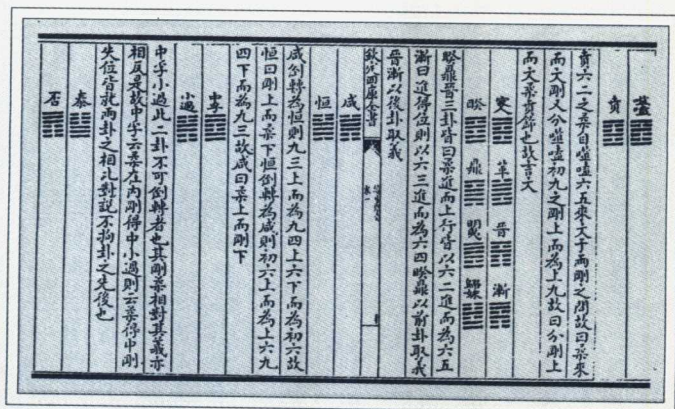 蠱
賁
賁六二之柔自噬嗑六五來文于兩剛之間故曰柔來
而文剛又分噬嗑初九之剛上而為上九故曰分剛上
而文柔賁飾也故言文
革 晉 漸
睽 鼎 明夷 歸妹
睽鼎晉三卦皆曰柔進而上行皆以六二進而為六五
漸曰進得位則以六三進而為六四睽鼎以前卦取義
晉漸以後卦取義
欽定四庫全書
咸 恒
咸倒轉為恒則九三上而為九四上六下而為初六故
恒曰剛上而柔下恒倒轉為咸則初六上而為上六九
四下而為九三故咸曰柔上而剛下
中孚
小過
中孚小過此二卦不可倒轉者也其剛柔相對其義亦
相反是故中孚云柔在內剛得中小過則云柔得中剛
失位皆就兩卦之相比對說不拘卦之先後也
泰
否